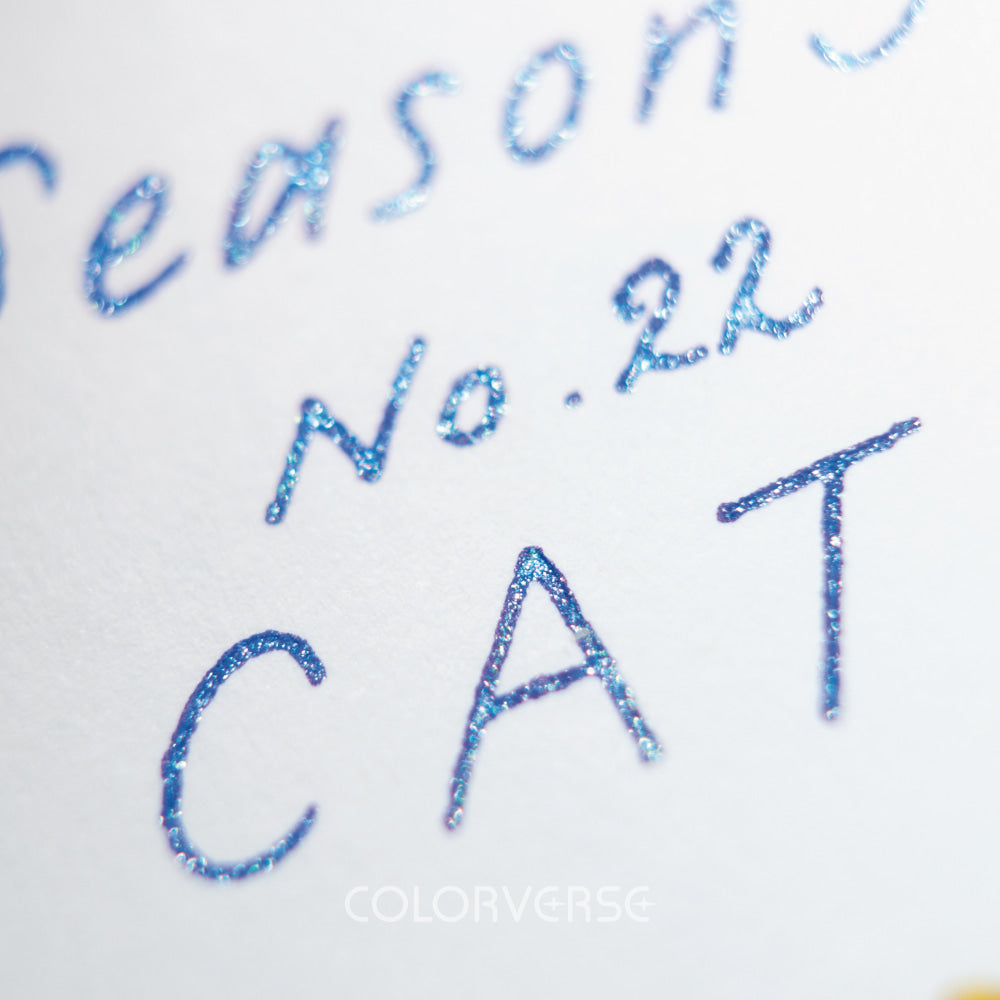 Season
No. 22
CAT
COLORVERSE